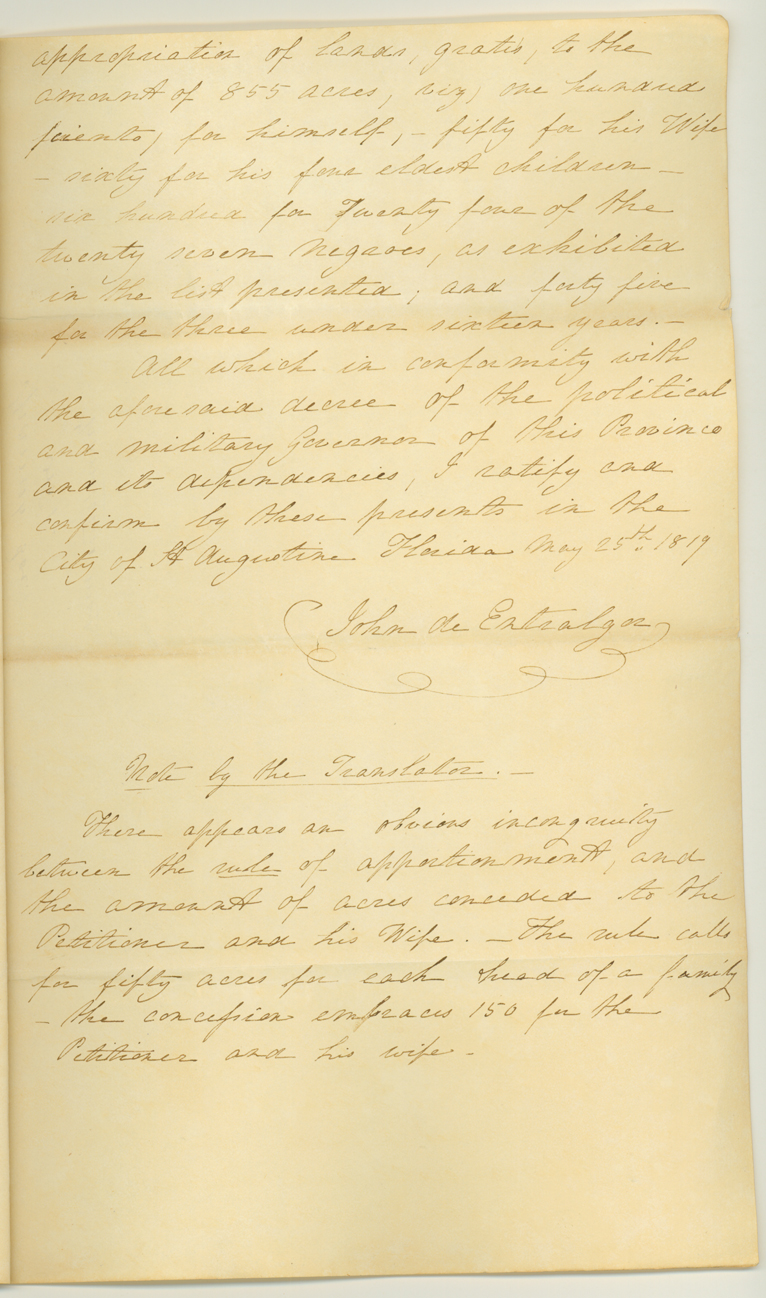 appropriation of lands, gratis, to the
amount of 855 acres, viz, one hundred
(ciento) for himself, – fifty for his Wife
– sixty for his four eldest children –
six hundred for Twenty four of the
twenty seven Negroes, as exhibited
in the list presented; and forty five
for the three under sixteen years. –
All which in conformity with
the aforesaid decree of the political
and military Governor of this Province
and its dependencies, I ratify and
confirm by these presents in the
City of St Augustine Florida May 25th 1819
John de Entralgo
Note by the Translator. –
There appears an obvious incongruity
between the rule of apportionment, and
the amount of acres conceded to the
Petitioner and his Wife. – The rule calls
for fifty acres for each head of a family
– the concession embraces 150 for the
Petitioner and his wife –